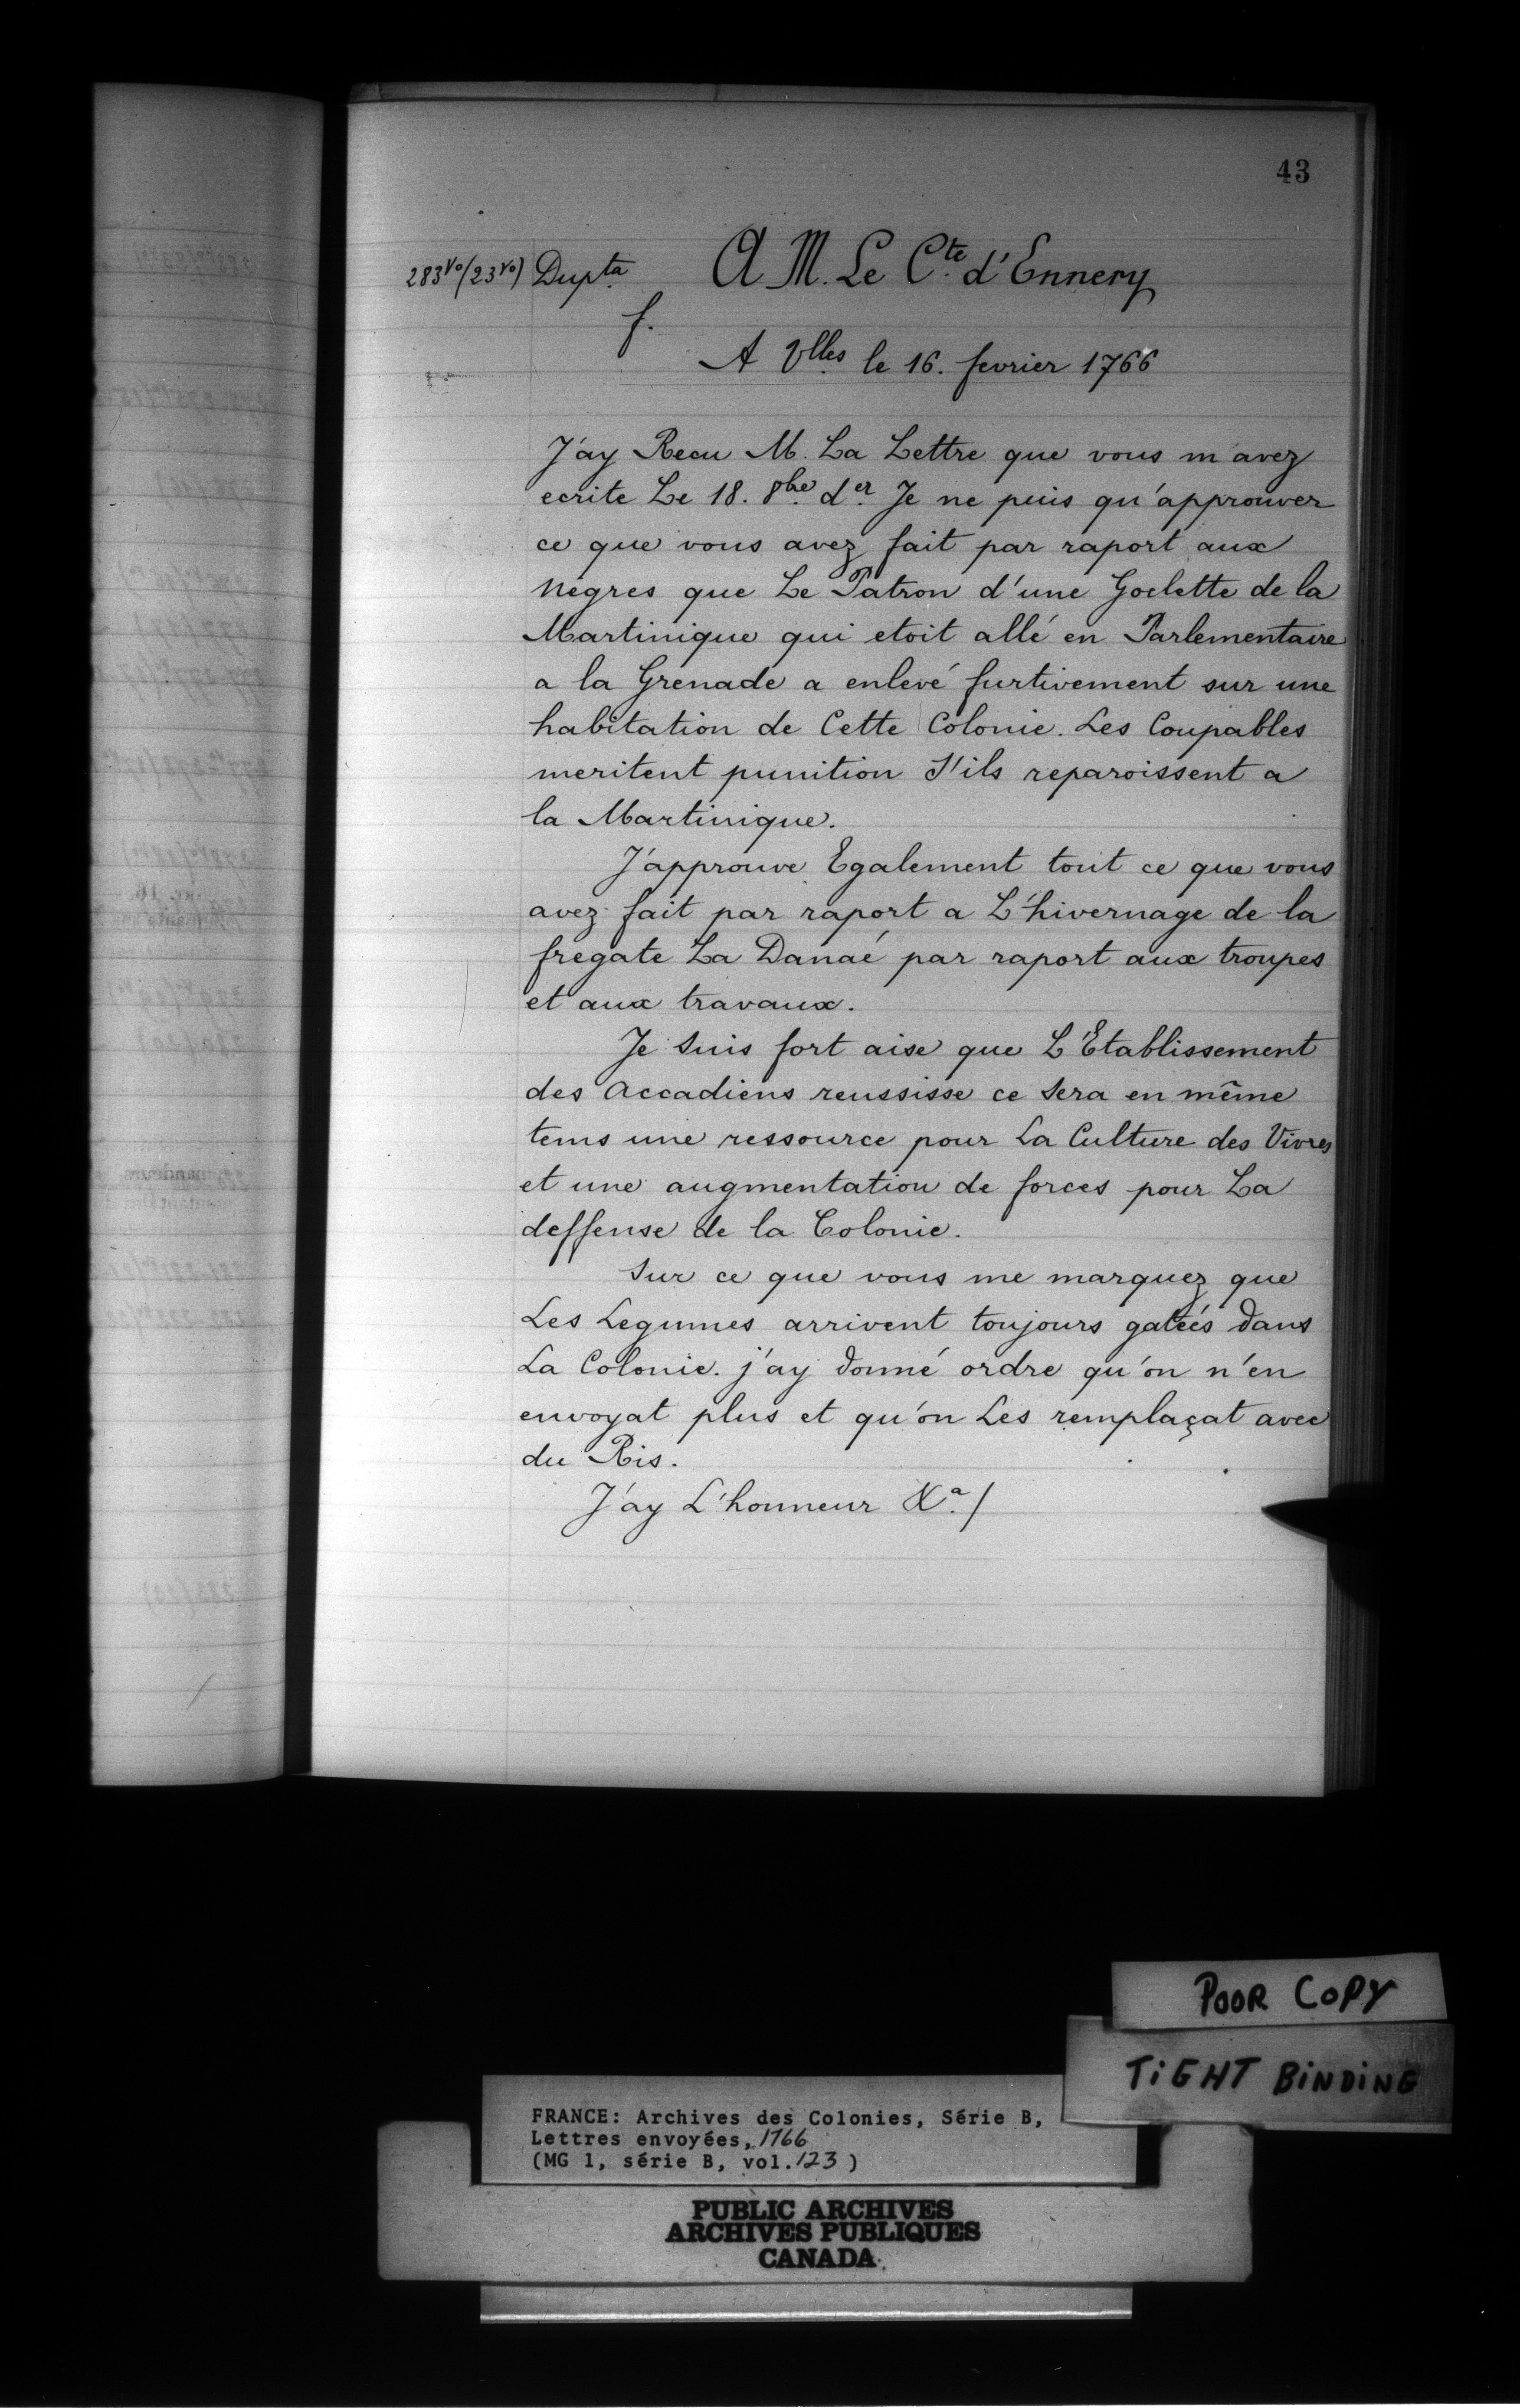 43
283vo (23vo) Dupta A M. Le Cte d'Ennery
f.
A Vlles le 16. fevrier 1766
J'ay Recu M. La Lettre que vous m'avez
ecrite Le 18. 8bre der Je ne puis qu'approuver
ce que vous avez fait par raport aux
Negres que Le Patron d'une Goelette de la
Martinique qui etoit allé en Parlementaire
a la Grenade a enlevé furtivement sur une
habitation de Cette Colonie. Les Coupables
meritent punition S'ils reparoissent a
la Martinique.
J'approuve Egalement tout ce que vous
avez fait par raport a L'hivernage de la
fregate La Danaé par raport aux troupes
et aux travaux.
Je Suis fort aise que L'Etablissement
des Accadiens reussisse ce Sera en même
tems une ressource pour La Culture des Vivres
et une augmentation de forces pour La
deffense de la Colonie.
Sur ce que vous me marquez que
Les Legumes arrivent toujours gateés dans
La Colonie. j'ay donné ordre qu'on n'en
envoyat plus et qu'on Les remplaçat avec
du Ris.
J'ay L'honneur Xa /
POOR COPY
TIGHT BINDING
FRANCE: Archives des Colonies, Série B,
Lettres envoyées, 1766
(MG 1, série B, vol. 123)
PUBLIC ARCHIVES
ARCHIVES PUBLIQUES
CANADA